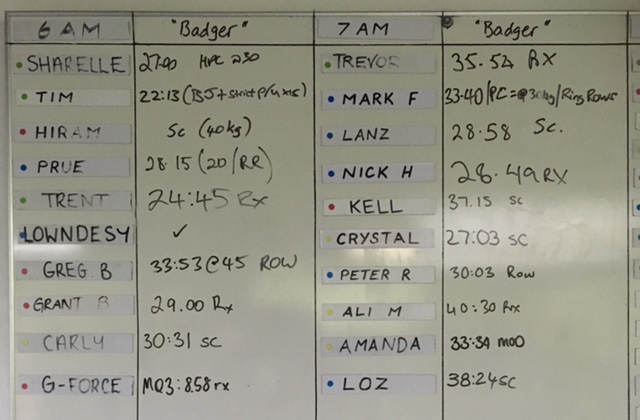 6 AM "Badger" 7 AM "Badger"
SHARELLE 27.00 TREVOR 35.52 RX
TIM 22:13 (BJ + strict P/U x15) MARK F 33.40/RC=@30kg/Ring Rows
HIRAM Sc (40kg) LANZ 28.58 Sc.
PRUE 28.15 (20/RR) NICK H 28.49 RX
TRENT 24:45 Rx KELL 37.15 sc
LOWNDESY ✓ CRYSTAL 27:03 sc
GREG B 33:53@45 ROW PETER R 30:03 Row
GRANT B 29.00 Rx ALI M 40:30 Rx
CARLY 30:31 sc AMANDA 33:34 mod
G-FORCE MQ3: 8.58 rx LOZ 38:24 sc